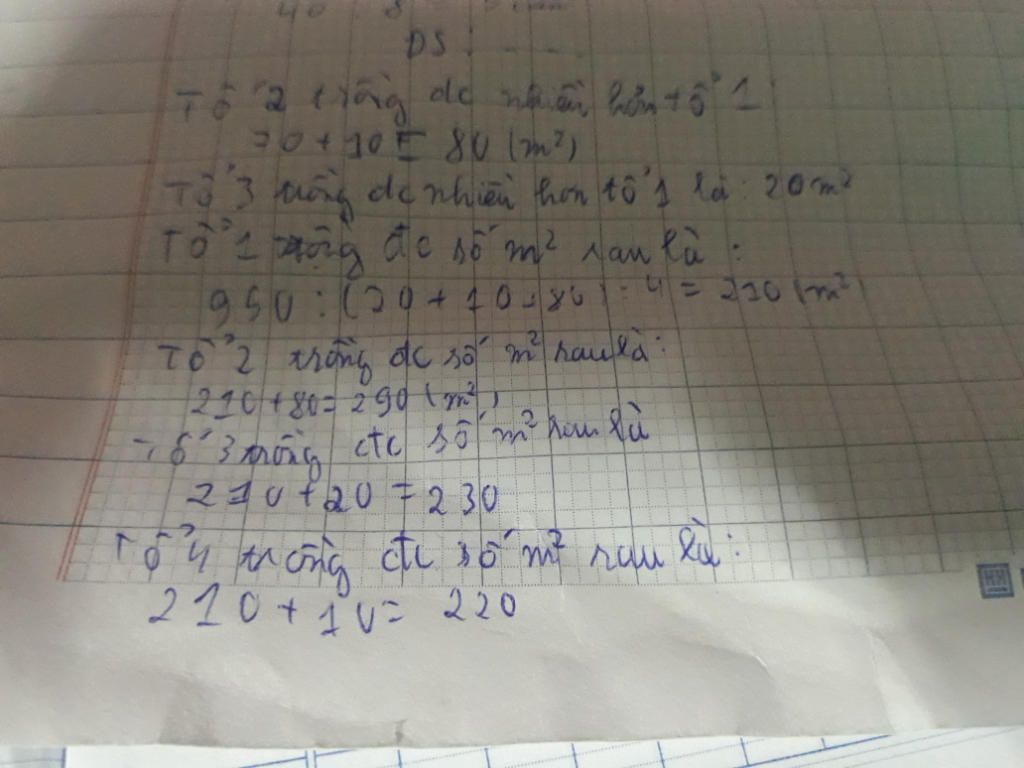 40 8
DS:
Tổ 2 trồng đc nhiều hơn tổ 1:
70 + 10 = 80 (m²)
Tổ 3 trồng đc nhiều hơn tổ 1 là: 20 m²
Tổ 1 trồng đc số m² rau là:
950 : (20 + 10 + 80) : 4 = 210 (m²)
Tổ 2 trồng đc số m² rau là:
210 + 80 = 290 (m²)
Tổ 3 trồng đc số m² rau là
210 + 20 = 230
Tổ 4 trồng đc số m² rau là:
210 + 10 = 220